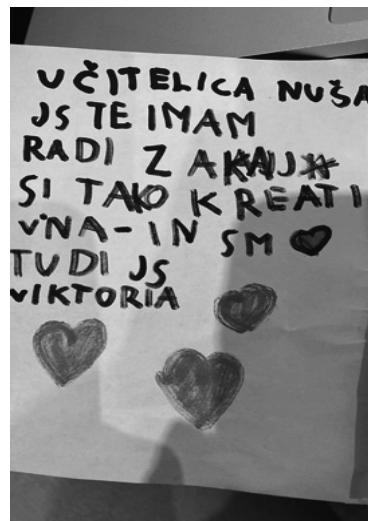 UČITELICA NUŠA
JS TE IMAM
RADI ZAKAJ
SI TAKO KREATI
VNA-IN SM
TUDI JS
VIKTORIA